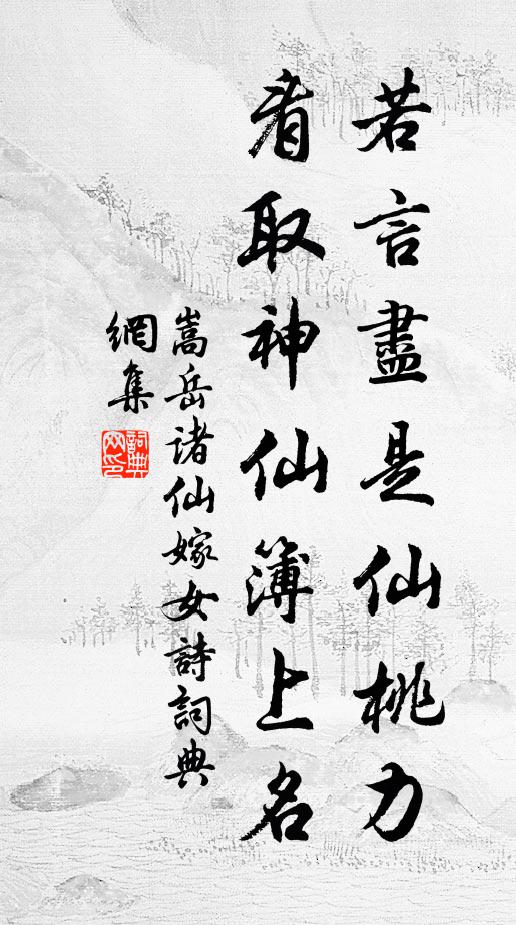 若言盡是仙桃力
看取神仙簿上名
嵩岳諸仙嫁女詩詞典
網集
詞典网印